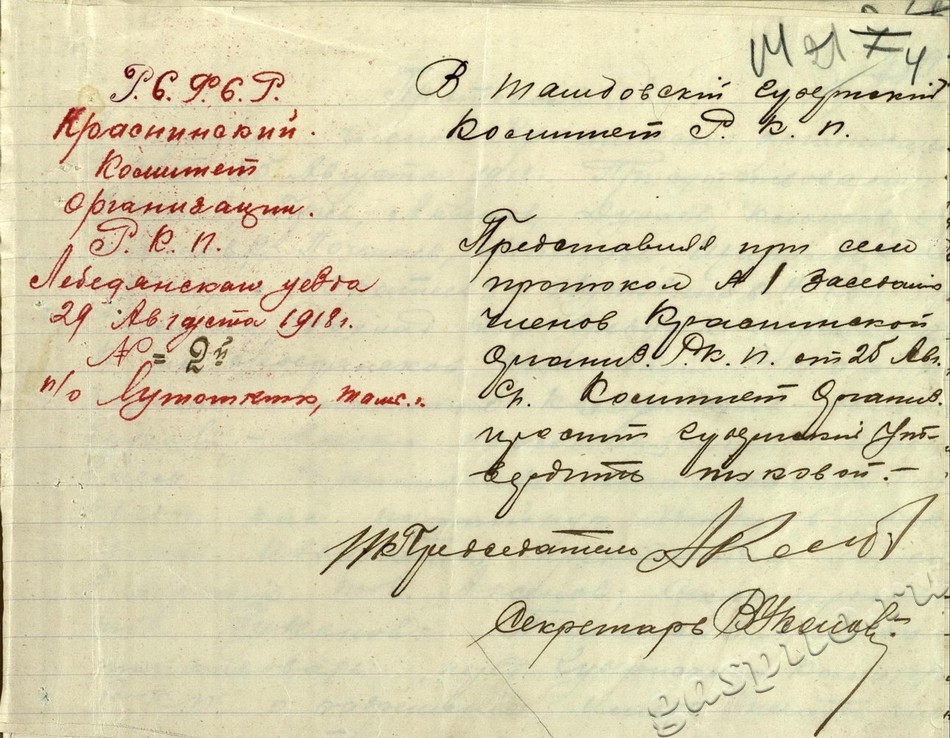 Р.С.Ф.С.Р.
Краснинский.
Комитет
Организации.
Р. К. П.
Лебедянскаго уезда
29 Августа 1918 г.
№ = 2й
п/о
В Тамбовский Губернский
Комитет Р. К. П.
Представляя при сем
протокол № 1 заседания
членов Краснинской
Организ. Р.К.П. от 25 Авг.
Комитет Организ.
просит Губернский Утв-
ердить таковой.-
Председатель
Секретарь
gaspito.ru